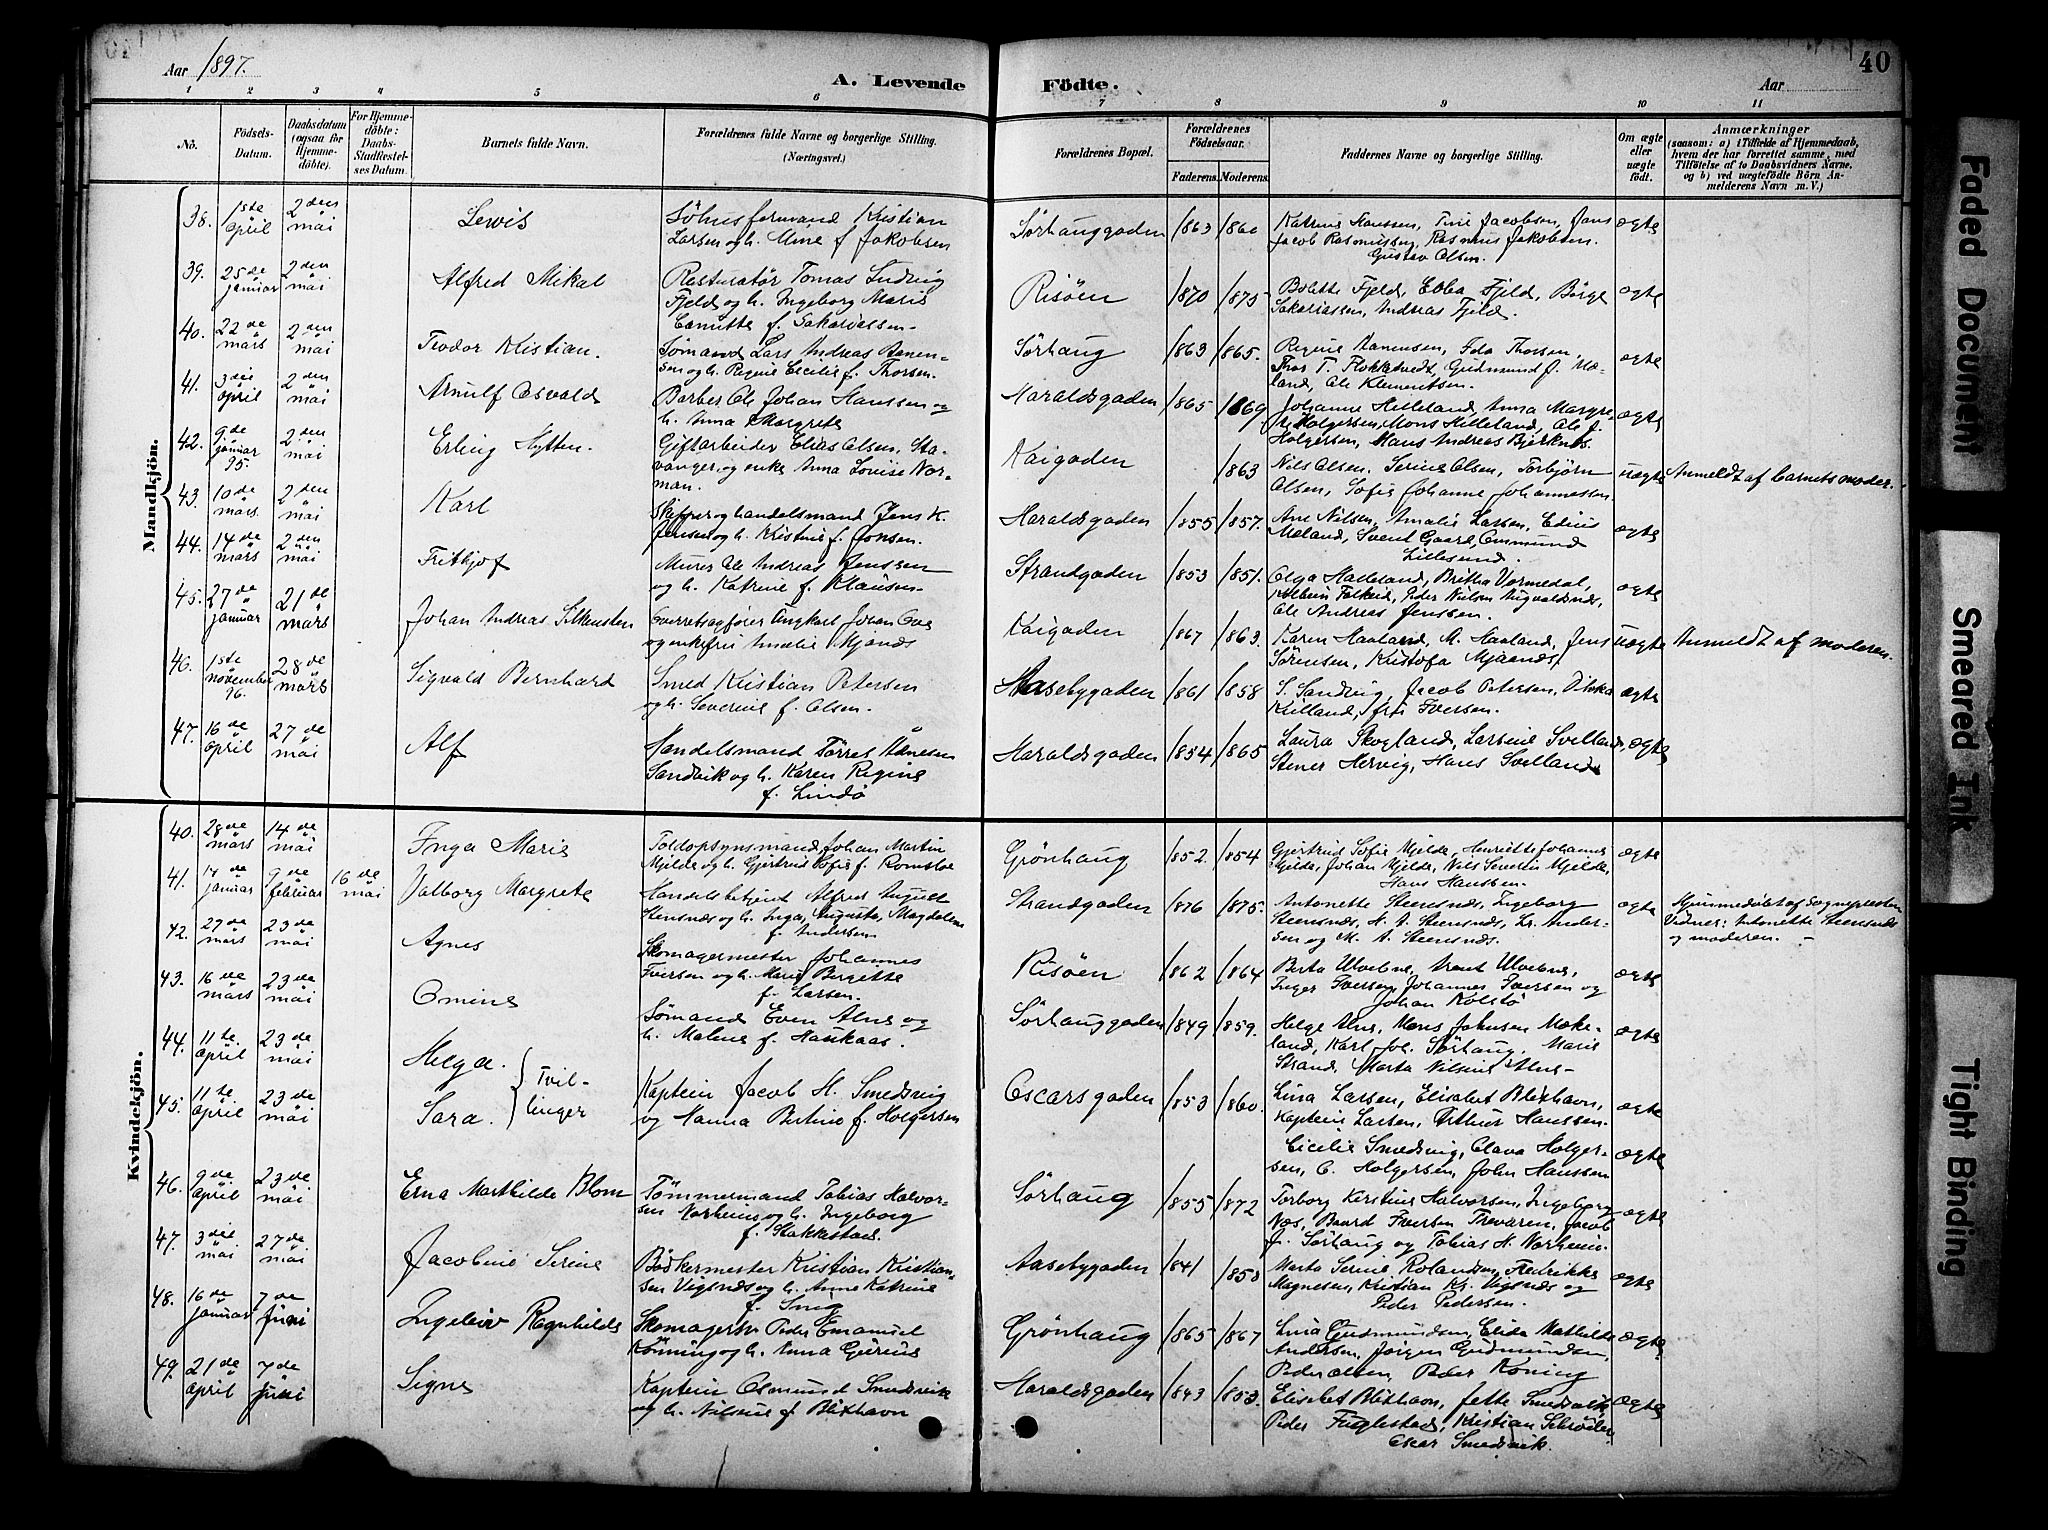 Aar 1897.
A. Levende Födte.
Aar
40
1 2 3 4 5 6 7 8 9 10 11
No.
Födsels-Datum.
Daabsdatum (ogsaa for Hjemmedöbte).
For Hjemmedöbte: Daabs-Stadfestelses Datum.
Barnets fulde Navn.
Forældrenes fulde Navne og borgerlige Stilling. (Næringsvei.)
Forældrenes Bopæl.
Forældrenes Födselsaar.
Faderens. Moderens.
Faddernes Navne og borgerlige Stilling.
Om ægte eller uægte födt.
Anmærkninger (saasom: a) i Tilfælde af Hjemmedaab, hvem der har forrettet samme, med Tilföielse af to Daabsvidners Navne, og b) ved uægtefödte Börn Anmelderens Navn m. V.)
Mandkjön.
38. 1ste april 2den mai Lewis Söhusformand Kristian Larsen og h. Mine f. Jakobsen Sörhauggaden 1863 1860 Katrine Hanssen, Tine Jacobsen, Jens Jacob Rasmussen, Rasmus Jakobsen. Gustav Olsen. ægte
39. 25de januar 2den mai Alfred Mikal Resturatør Tomas Ludvig Fjeld og h. Ingeborg Marie Camitte f. Sakariassen Risöen 1870 1875 Bolette Fjeld, Ebba Fjeld, Börge Sakariassen, Andreas Fjeld. ægte
40. 22de mars 2den mai Teodor Kristian. Sømand Lars Andreas Aanensen og h. Regine Cecilie f. Thorsen. Sörhaug 1863 1865. Regine Aanensen, Ida Thorsen, Thor T. Flokketvedt, Gudmund J. Mæland, Ole Klementsen. ægte
41. 3die april 2den mai Arnulf Osvald Barber Ole Johan Hanssen og h. Anna Margrete Haraldsgaden 1865 1869 Johanne Hilleland, Anna Margrete Holgersen, Mons Hilleland, Ole J. Holgersen, Hans Andreas Bjerknes. ægte
42. 9de januar 95. 2den mai Erling Hytten. Giftarbeider Elias Olsen, Stavanger, og enke Anna Louise Norman. Kaigaden 1863 Nils Olsen, Serine Olsen, Torbjørn Olsen, Sofie Johanne Johannessen. uægte Anmeldt af barnets moder.
43. 10de mars 2den mai Karl Skipper og handelsmand Jens K. Jensen og h. Kristine f. Jonsen. Haraldsgaden 1855 1857. Ane Nilsen, Amalie Larsen, Eline Mæland, Svent Gaard, Ommund Lillesund. ægte
44. 14de mars 2den mai Fritkjof Murer Ole Andreas Jenssen og h. Katrine f. Klausen. Strandgaden 1853 1851. Olga Hadeland, Britha Vormedal, Peder Nilsen Augvaldsnes, Ole Andreas Jenssen. ægte
45. 27de januar 21de mars Johan Andreas Overretsagfører Ungkarl Johan Ove og enkefru Amalie Mjaanes Kaigaden 1867 1863. Karen Haaland, A. Haaland, Jens Sörensen, Kristofa Mjaanes. uægte Anmeldt af moderen.
46. 1ste november 96. 28de mars Sigvald Bernhard Smed Kristian Petersen og h. Severine f. Olsen. Aasebygaden 1861 1858 S. Sandvig, Jacob Petersen, Kielland, fru Iversen. ægte
47. 16de april 27de mai Alf Handelsmand Tørres Hånesen Sandvik og h. Karen Regine f. Lindø Haraldsgaden 1854 1865 Laura Skogland, Larsine Svelland, Stener Hervig, Hans Svelland ægte
Kvindekjön.
40. 28de mars 14de mai Inga Marie Toldopsynsmand Johan Martin Mjelde og h. Gjertrud Sofie f. Romslo Grönhaug 1852. 1854 Gjertrud Sofie Mjelde, Henriette Johannes Mjelde, Johan Mjelde, Nils Severin Mjelde, Hans Hanssen. ægte
41. 14de januar 9de februar 16de mai Valborg Margrete Handelsbetjent Alfred August Steensnæs og h. Inga Augusta Magdalena f. Andersen Strandgaden 1876 1875. Antonette Steensnæs, Ingeborg Steensnæs, H. A. Steensnæs, Kr. Andersen og M. A. Steensnæs. ægte Hjemmedøbt af Sognepresten Vidner: Antonette Steensnæs og moderen.
42. 27de mars 23de mai Agnes Skomagermester Johannes Iversen og h. Marie Birgitte f. Larsen. Risöen 1862 1864 Berta Ulvebne, Ulvebne, Inger Iversen, Johannes Iversen og Johan Kolstø ægte
43. 16de mars 23de mai Omine Sømand Even Alns og h. Malene f. Haukaas. Sörhauggaden 1849 1859. Helge Alns, Mons Johnsen Mækeland, Karl Joh. Sörhaug, Marie Strand, Marta Nilsine Alns ægte
44. 11te april 23de mai Helga.
45. 11te april 23de mai Sara. Tvillinger Kaptein Jacob H. Smedsvig og Hanna Bertine f. Holgersen Oscarsgaden 1853 1860. Lina Larsen, Elisabet Blikhavn, Kaptein Larsen, Arthur Hanssen. ægte
Cicilie Smedsvig, Clava Holgersen, C. Holgersen, John Hanssen ægte
46. 9de april 23de mai Erna Marthilde Blom Tömmermand Tobias Halvorsen Norheim og h. Ingeborg f. Stakkestad. Sörhaug 1855 1872 Torborg Kirstine Halvorsen, Ingeborg Næs, Baard Iversen Trevaren, Jacob J. Sörhaug og Tobias H. Norheim. ægte
47. 3die mai 27de mai Jacobine Serine Bödkermester Kristian Kristiansen Vigsnæs og h. Anne Katrine f. Aasebygaden 1841 1850 Marta Serine Rolandsen, Fredrikke Magnesen, Kristian Kr. Vigsnæs og Peder Pedersen. ægte
48. 16de januar 7de juni Ingeleiv Ragnhilds Skomagersv. Peder Emanuel Könning og h. Anna Gurine Grönhaug 1865 1867 Lina Gudmundsen, Elida Mathilde Andersen, Jörgen Gudmundsen, Peder Olsen, Peder Köning ægte
49. 21de april 7de juni Signe Kaptein Osmund Smedsvik og h. Nilsine f. Blikhavn Haraldsgaden 1843 1853. Elisabet Blikhavn, Jette Smedsvik, Peder Fuglestad, Kristian Schröder, Oscar Smedsvik. ægte
Faded Document
Smeared Ink
Tight Binding